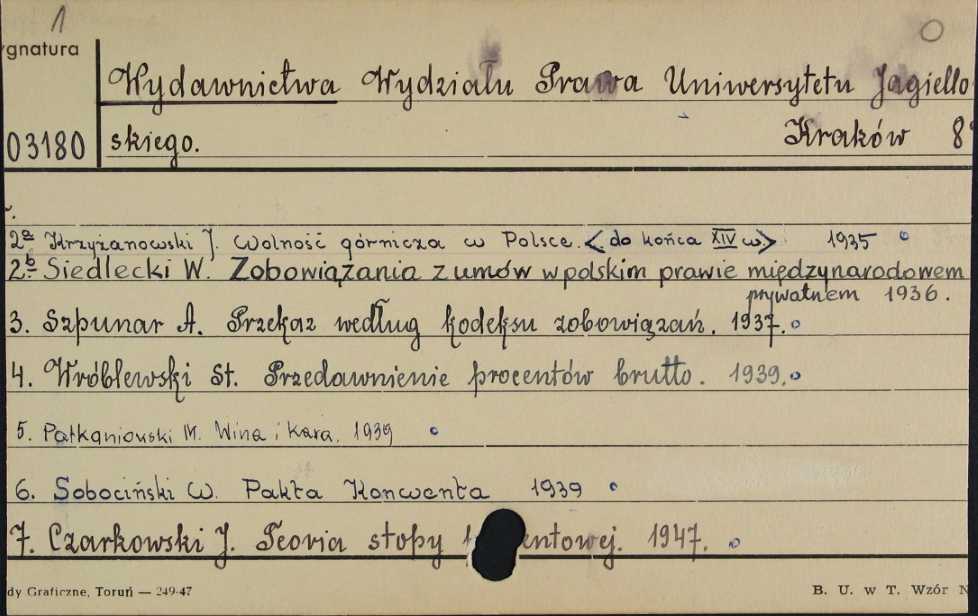 1
ygnatura
Wydawnictwa Wydziału Prawa Uniwersytetu Jagiello
03180 skiego. Kraków 8°
2a Krzyżanowski J. Wolność górnicza w Polsce. <do końca XIV w> 1935
2b Siedlecki W. Zobowiązania z umów w polskim prawie międzynarodowem
prywatnem 1936.
3. Szpunar A. Przekaz według kodeksu zobowiązań. 1937.
4. Wróblewski St. Przedawnienie procentów brutto. 1939.
5. Patkaniowski M. Wina i kara. 1939
6. Sobociński W. Pakta Konwenta 1939
7. Czarkowski J. Teoria stopy entowej. 1947.
dy Graficzne, Toruń — 249-47 B. U. w T. Wzór N